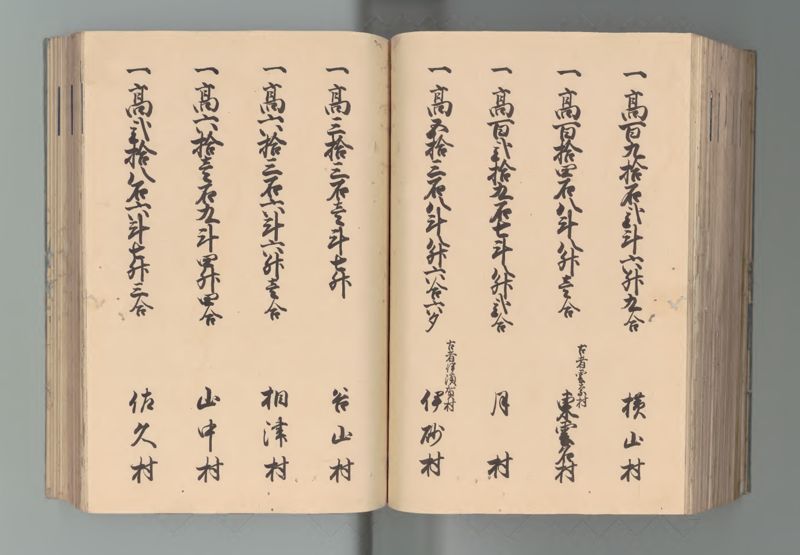 一高百九拾石弐斗六升九合 横山村
一高百拾四石八斗八升壱合 古者雲名村 東雲名村
一高百弐拾五石七斗八升弐合 月村
一高五拾三石八斗八升六合六夕 古者伊須賀村 伊砂村
一高三拾三石壱斗七升 谷山村
一高六拾三石六斗六升壱合 相津村
一高六拾壱石九斗四升四合 山中村
一高弐拾八石六斗七升三合 佐久村